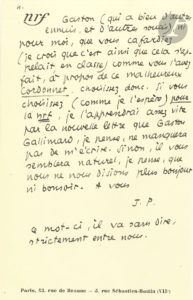 nrf
Gaston (qui a bien d'autres
ennuis, et d'autres soucis)
pour moi, que vous cafardiez
(je crois que c'est ainsi que cela s'ap-
pelait en classe) comme vous l'avez
fait, à propos de ce malheureux
Cordonnet, choisissez donc. Si vous
choisissez (comme je l'espère) pour
la nrf, je l'apprendrai assez vite
par la nouvelle lettre que Gaston
Gallimard, je pense, ne manquera
pas de m'écrire. Sinon, il vous
semblera naturel, je pense, que
nous ne nous disions plus bonjour
ni bonsoir. à vous
J. P.
ce mot-ci, il va sans dire,
strictement entre nous.
Paris, 43, rue de Beaune — 5, rue Sébastien-Bottin (VIIe)